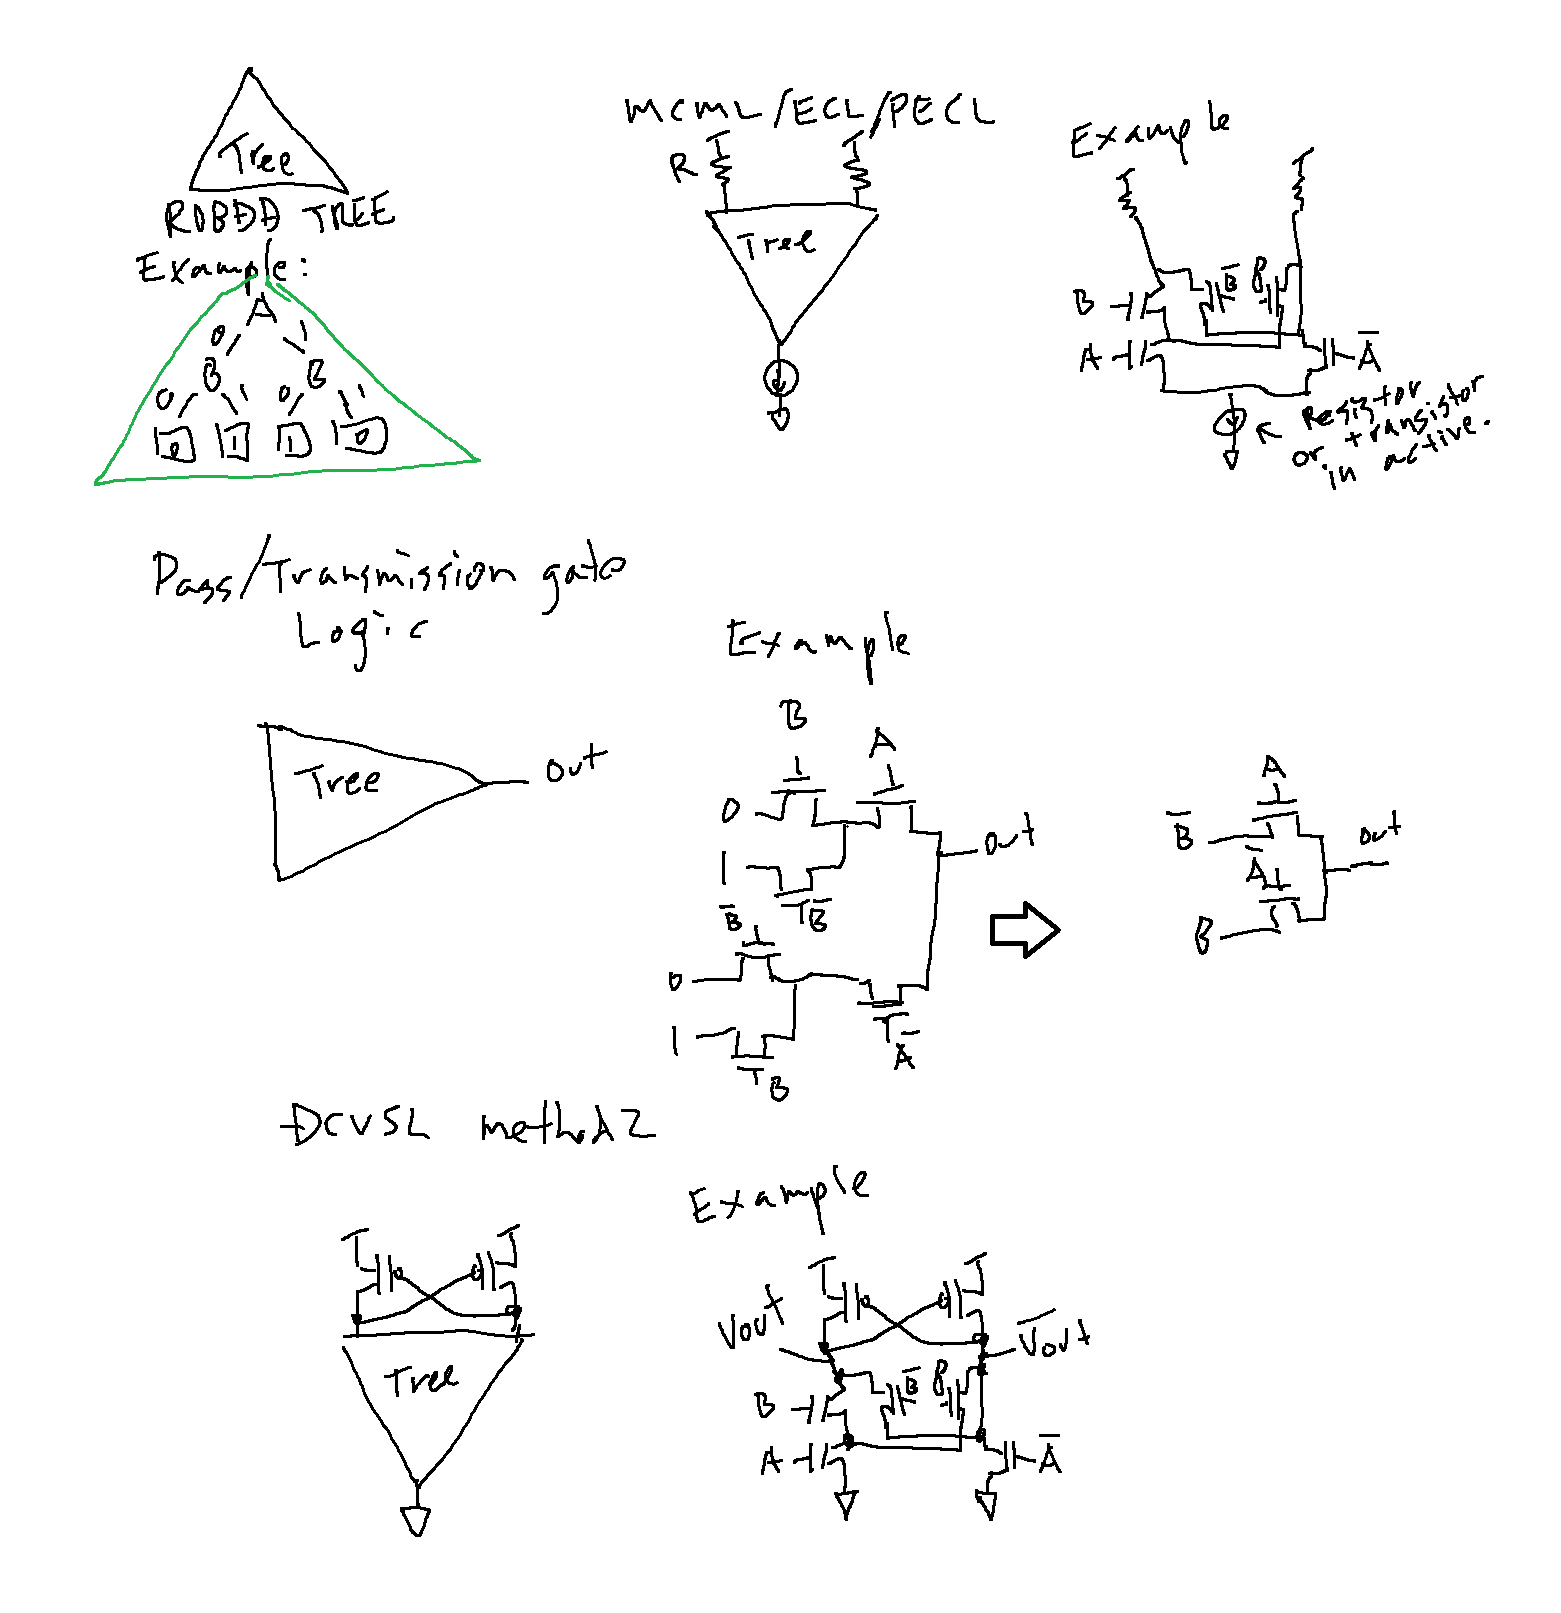 Tree
ROBDD TREE
Example:
A
0 1
B B
0 1 0 1
0 1 1 0
MCML/ECL/PECL
R
Tree
Example
B B̅ B
A A̅
Resistor
or transistor
in active.
Pass/Transmission gate
Logic
Tree out
Example
B
A
0
1 out
B̅
B̅
0
1
A̅
B
A
B̅ out
A̅
B
DCVSL method 2
Tree
Example
Vout V̅o̅u̅t̅
B B̅ B
A A̅